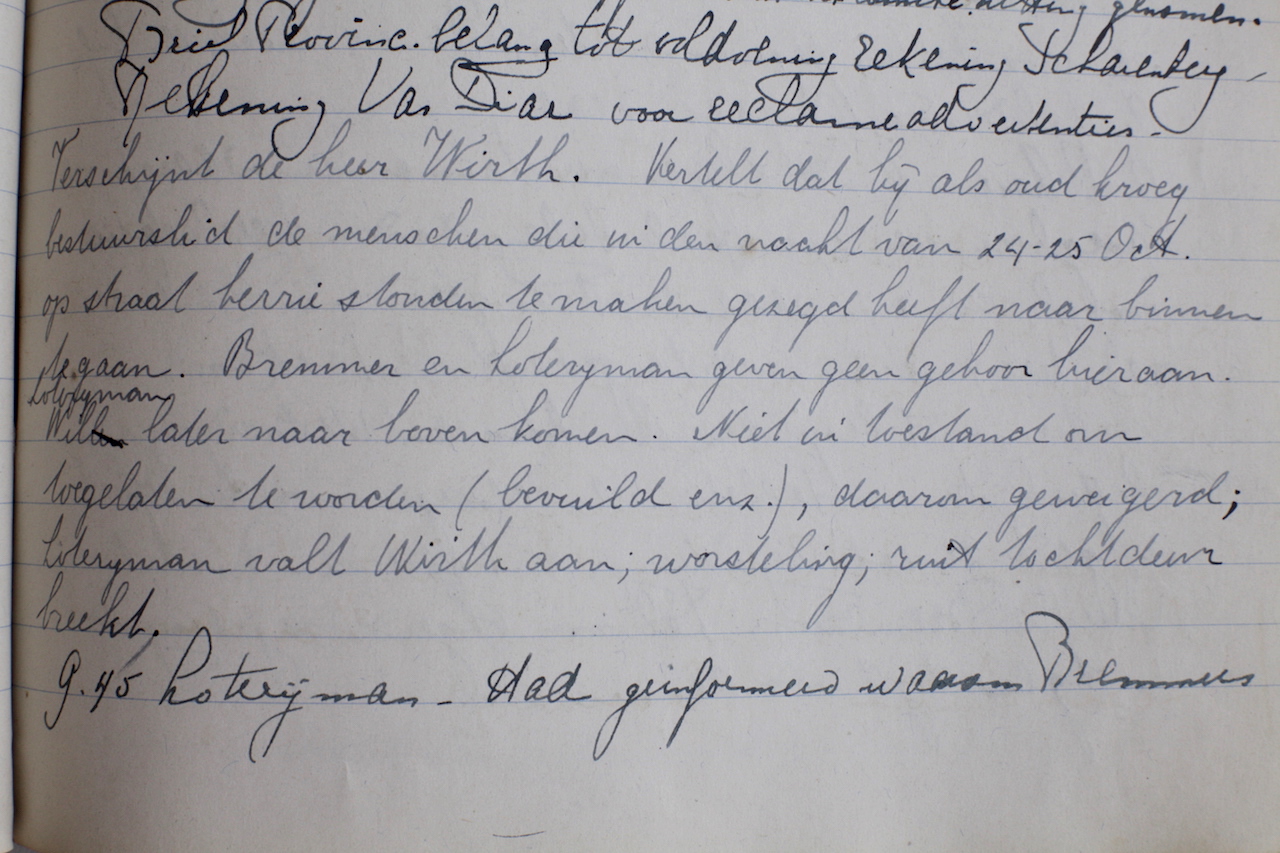 genomen.
Brief Provinc. belang tot voldoening rekening Scharenberg -
Rekening Van Diar voor reclame advertenties.
Verschijnt de heer Wirth. Vertelt dat hij als oud kroeg
bestuurslid de menschen die in den nacht van 24-25 Oct.
op straat herrie stonden te maken gezegd heeft naar binnen
te gaan. Bremmer en Loteryman geven geen gehoor hieraan.
Loteryman
Will later naar boven komen. Niet in toestand om
toegelaten te worden (bevuild enz.), daarom geweigerd;
Loteryman valt Wirth aan; worsteling; ruit tochtdeur
breekt.
9.45 Loterijman - Had geinformeerd waarom Bremmers